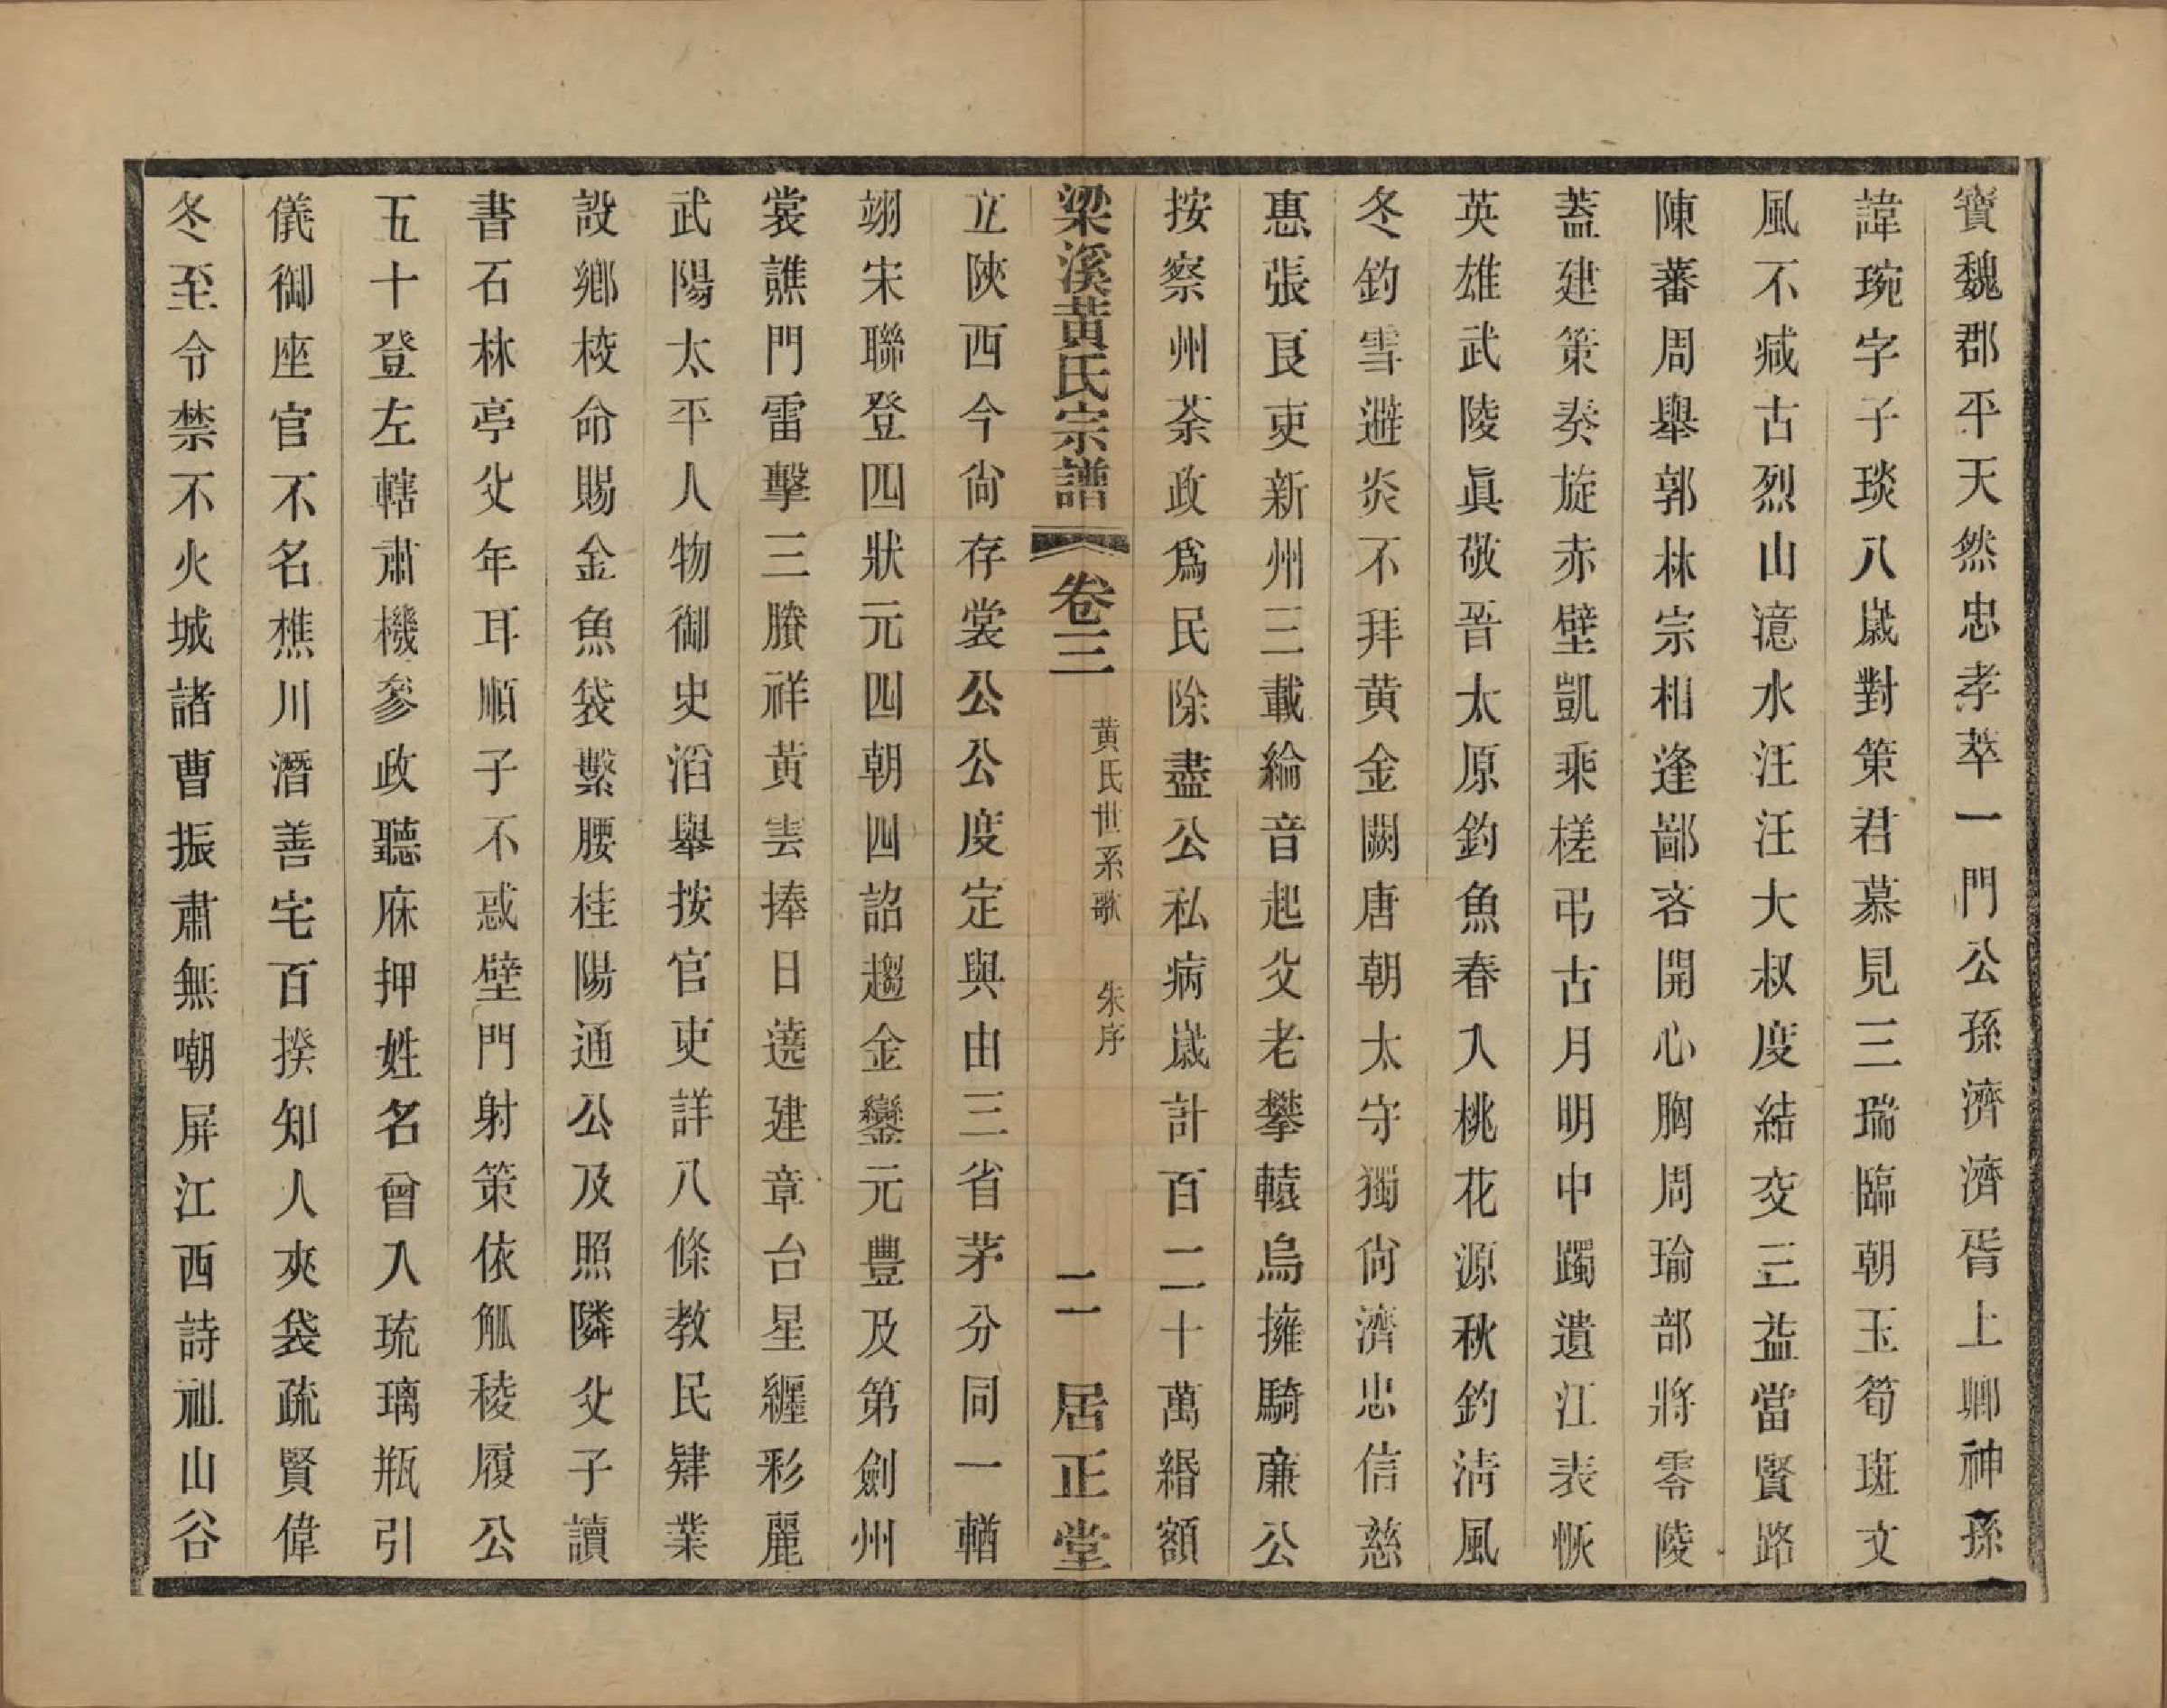 寶魏郡平天然忠孝萃一門公孫濟濟胥上卿神孫
諱琬字子琰八歲對策君慕見三瑞臨朝玉筍斑文
風不臧古烈山澺水汪汪大叔度結交三益當賢路
陳蕃周舉郭林宗相逢鄙吝開心胸周瑜部將零陵
蓋建策奏旋赤壁凱乘槎弔古月明中躅遺江表恢
英雄武陵眞敬晉太原釣魚春入桃花源秋釣淸風
冬釣雪避炎不拜黄金闕唐朝太守獨尙濟忠信慈
惠張良吏新州三載綸音起父老攀轅烏擁騎廉公
按察州荼政爲民除盡公私病歲計百二十萬緡額
梁溪黃氏宗譜 卷三 黄氏世系歌 朱序 二 居正堂
立陜西今尙存裳公公度定與由三省茅分同一輶
翊宋聯登四狀元四朝四詔趨金鑾元豐及第劍州
裳譙門雷擊三牓祥黃裳捧日遶建章台星纏彩麗
武陽太平人物御史滔舉按官吏詳八條教民肄業
設鄕校命賜金魚袋繫腰桂陽通公及照隣父子讀
書石林亭父年耳順子不惑壁門射策依觚稜履公
五十登左轄肅機參政聽庥押姓名曾入琉璃瓶引
儀御座官不名樵川潛善宅百揆知人夾袋疏賢偉
冬至令禁不火城諸曹振肅無嘲屏江西詩祖山谷